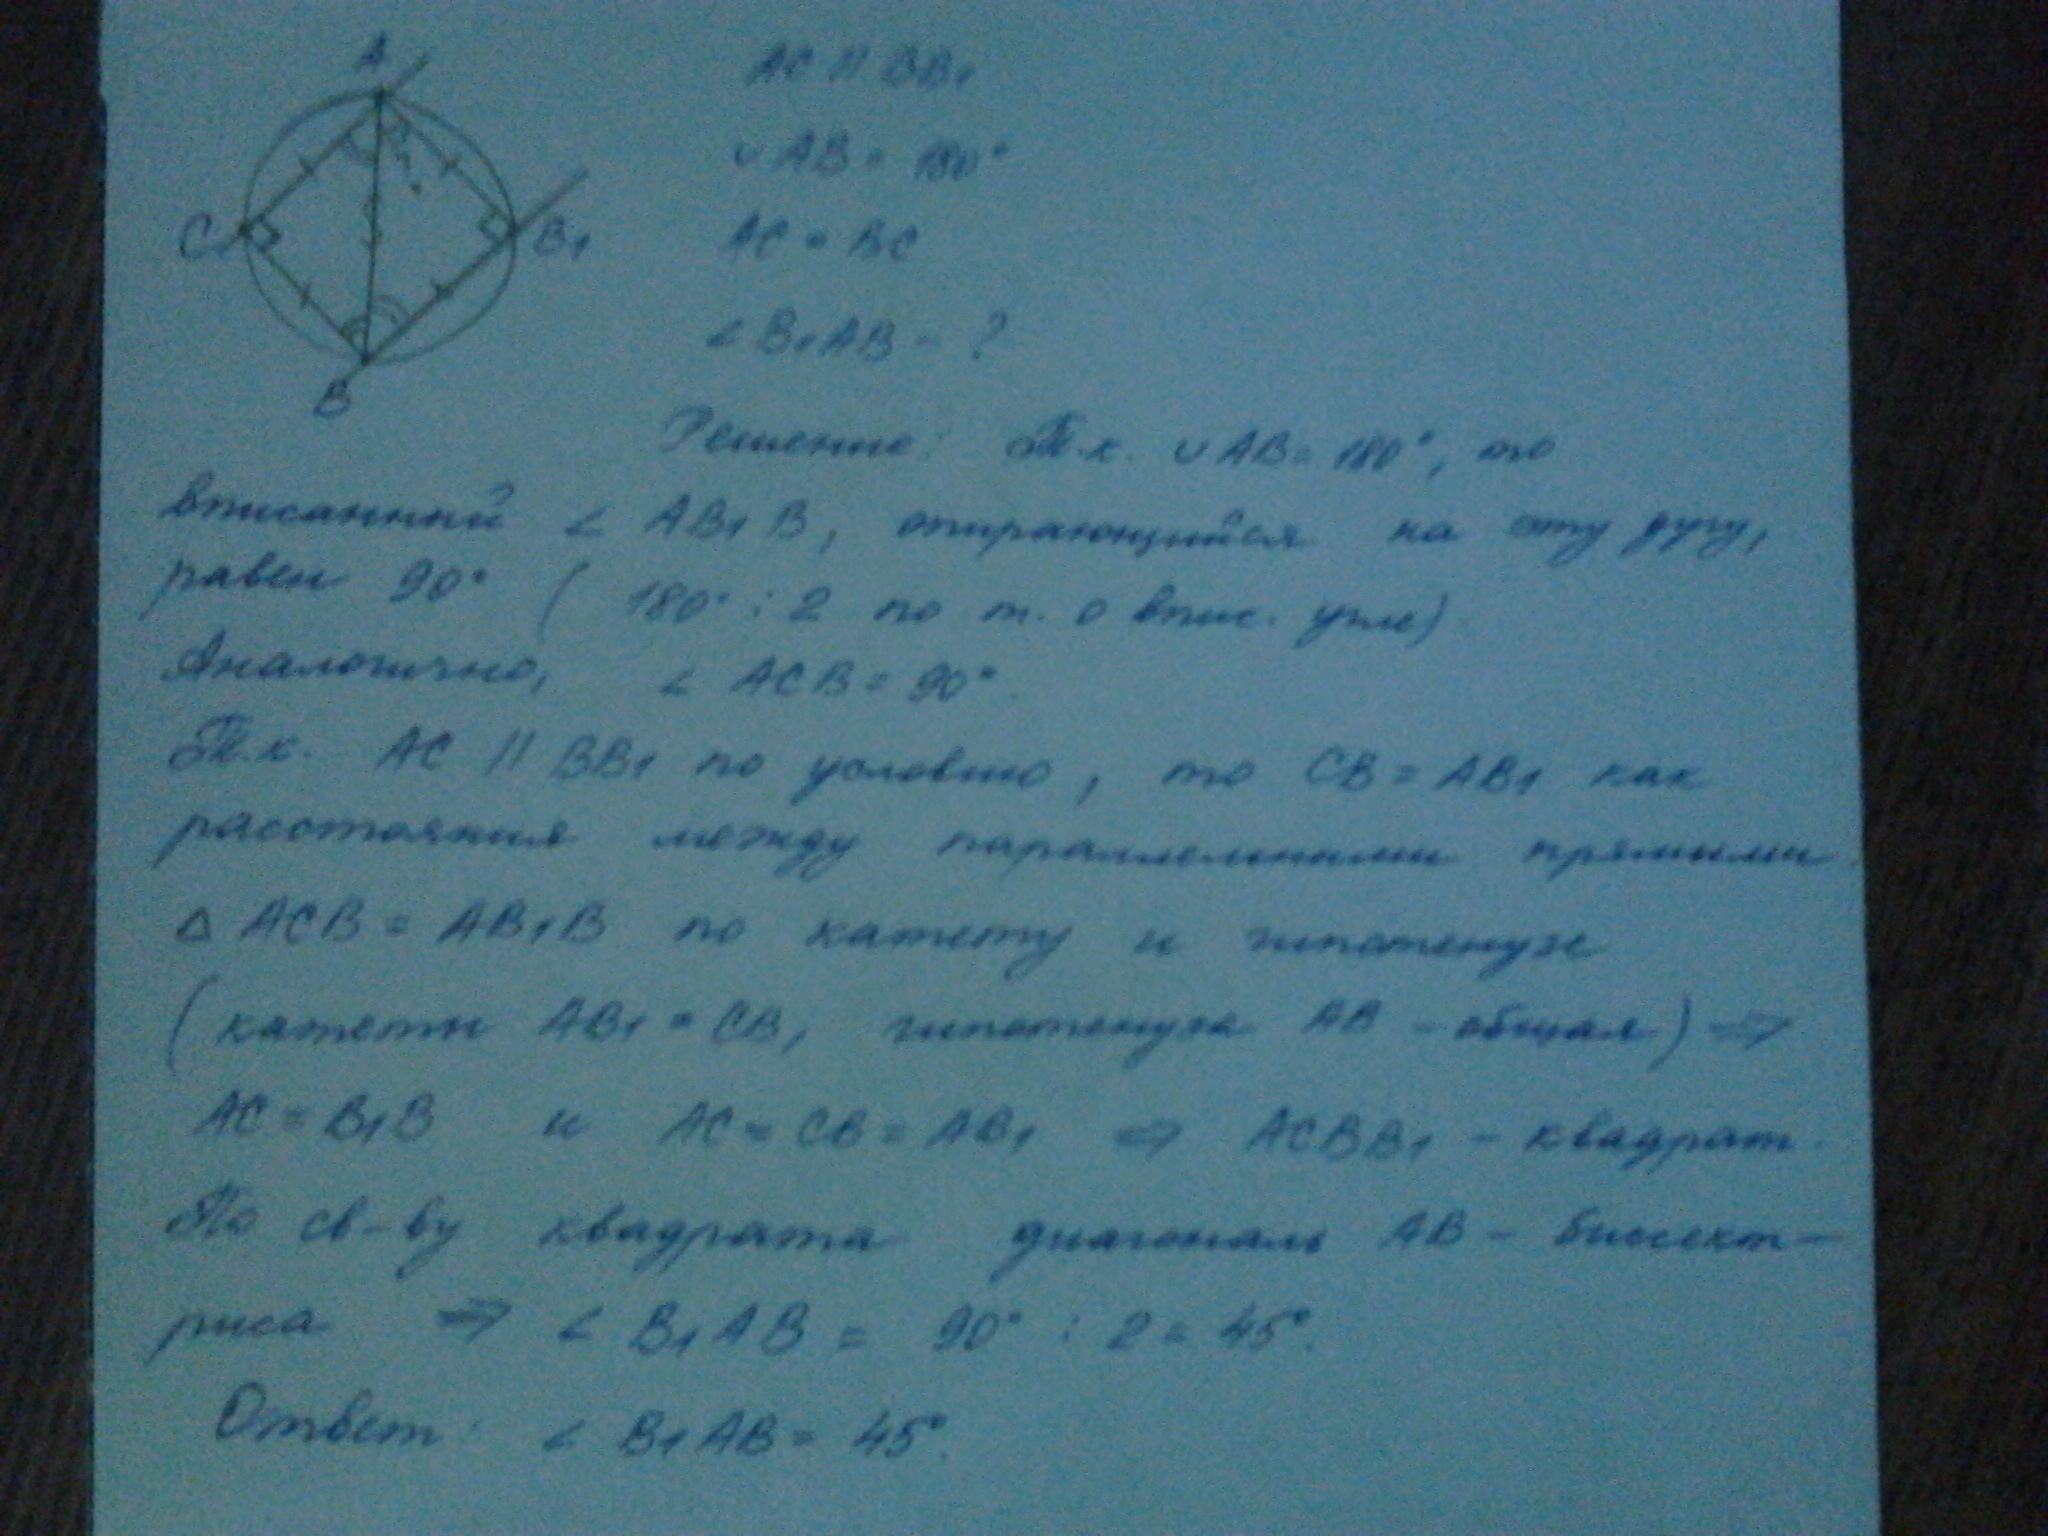 A
C
B1
B
AC || BB1
∪ AB = 180°
AC = BC
∠ B1AB - ?
Решение: Т.к. ∪ AB = 180°, то
вписанный ∠ AB1B, опирающийся на эту дугу,
равен 90° ( 180° : 2 по т. о впис. угле)
Аналогично, ∠ ACB = 90°.
Т.к. AC || BB1 по условию, то CB = AB1 как
расстояния между параллельными прямыми.
△ ACB = AB1B по катету и гипотенузе
( катеты AB1 = CB, гипотенуза AB - общая) ⇒
AC = B1B и AC = CB = AB1 ⇒ ACBB1 - квадрат.
По св-ву квадрата диагональ AB - биссект-
риса ⇒ ∠ B1AB = 90° : 2 = 45°.
Ответ: ∠ B1AB = 45°.